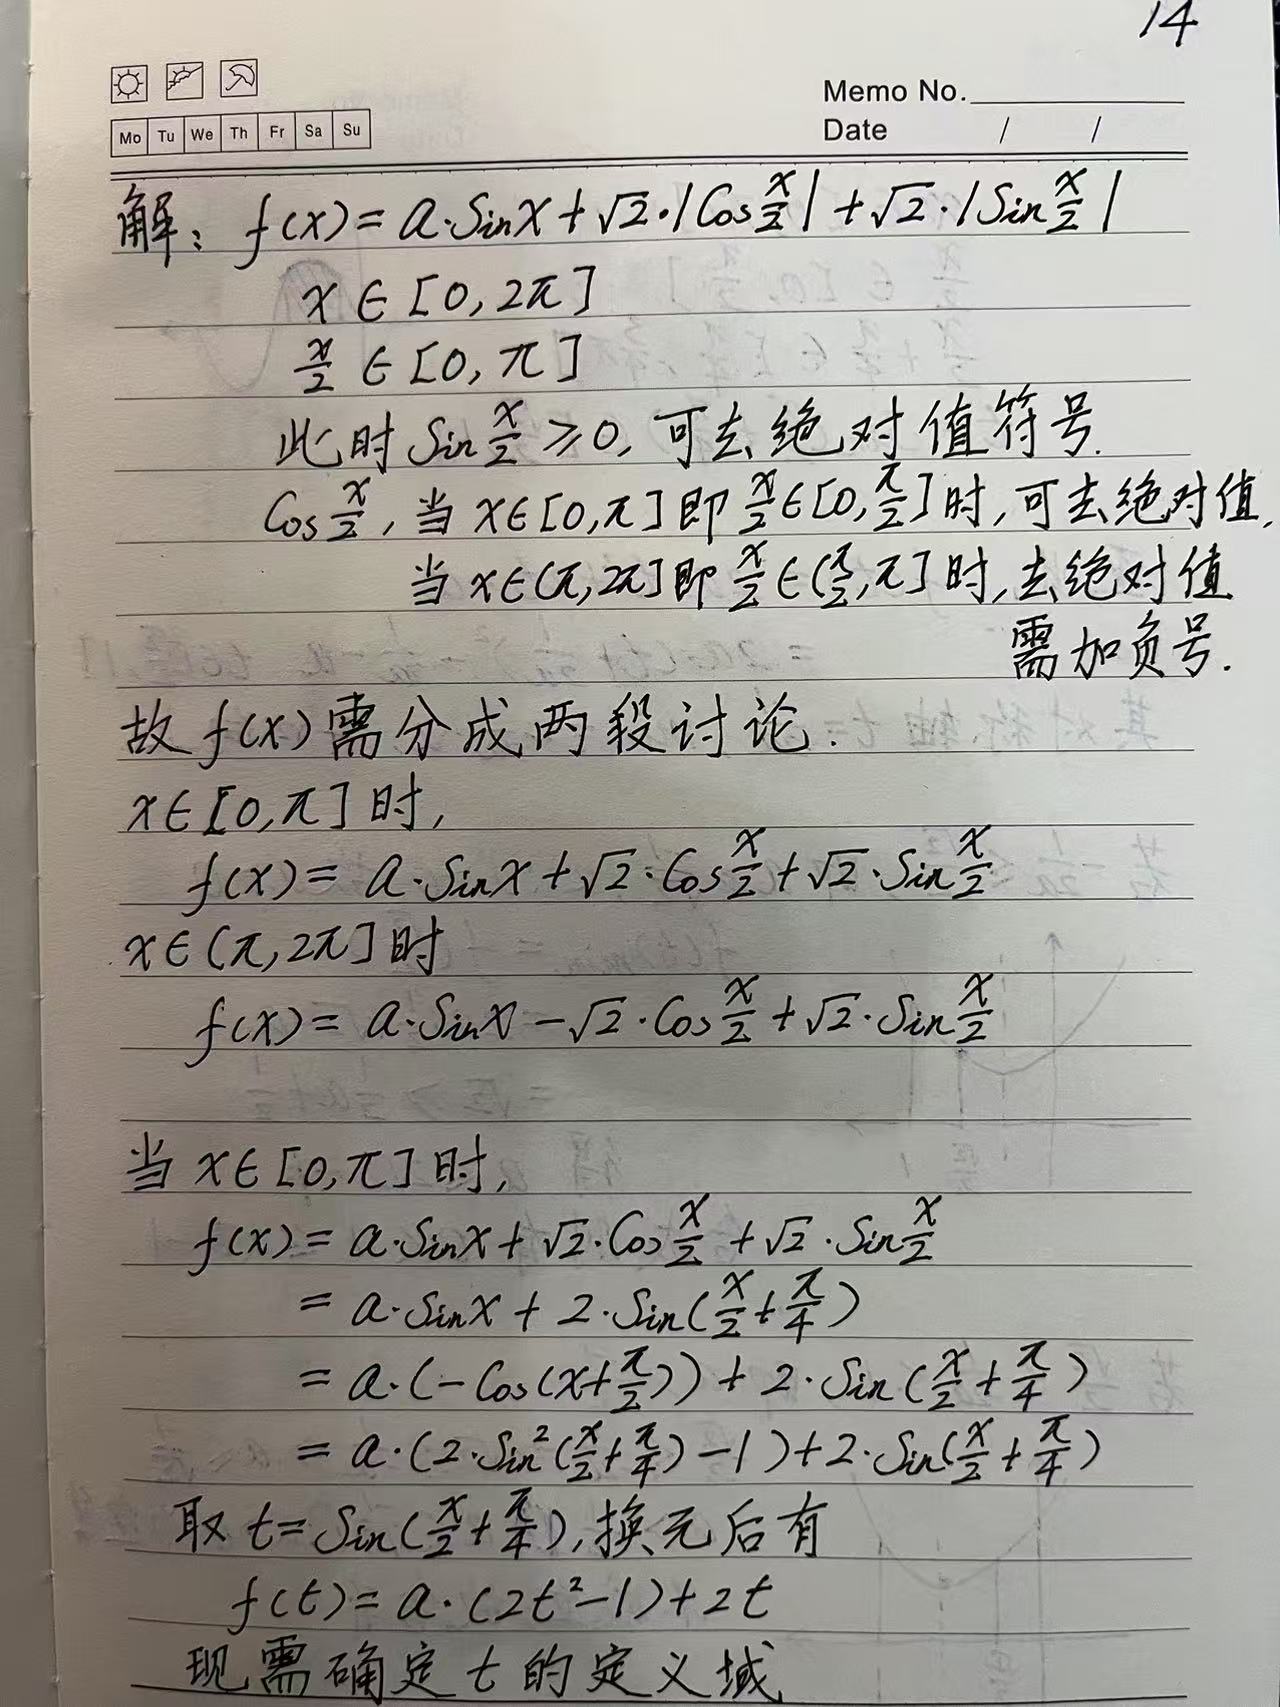 14
Memo No.
Mo Tu We Th Fr Sa Su
Date / /
解: f(x) = a·Sinx + √2·|Cos x/2| + √2·|Sin x/2|
x ∈ [0, 2π]
x/2 ∈ [0, π]
此时 Sin x/2 ≥ 0, 可去绝对值符号.
Cos x/2, 当 x∈[0,π] 即 x/2∈[0,π/2] 时, 可去绝对值,
当 x∈(π,2π] 即 x/2∈(π/2,π] 时, 去绝对值
需加负号.
故 f(x) 需分成两段讨论.
x∈[0,π] 时,
f(x) = a·Sinx + √2·Cos x/2 + √2·Sin x/2
x∈(π,2π] 时
f(x) = a·Sinx - √2·Cos x/2 + √2·Sin x/2
当 x∈[0,π] 时,
f(x) = a·Sinx + √2·Cos x/2 + √2·Sin x/2
= a·Sinx + 2·Sin(x/2 + π/4)
= a·(-Cos(x+π/2)) + 2·Sin(x/2 + π/4)
= a·(2·Sin²(x/2+π/4) - 1) + 2·Sin(x/2 + π/4)
取 t = Sin(x/2 + π/4), 换元后有
f(t) = a·(2t²-1) + 2t
现需确定 t 的定义域